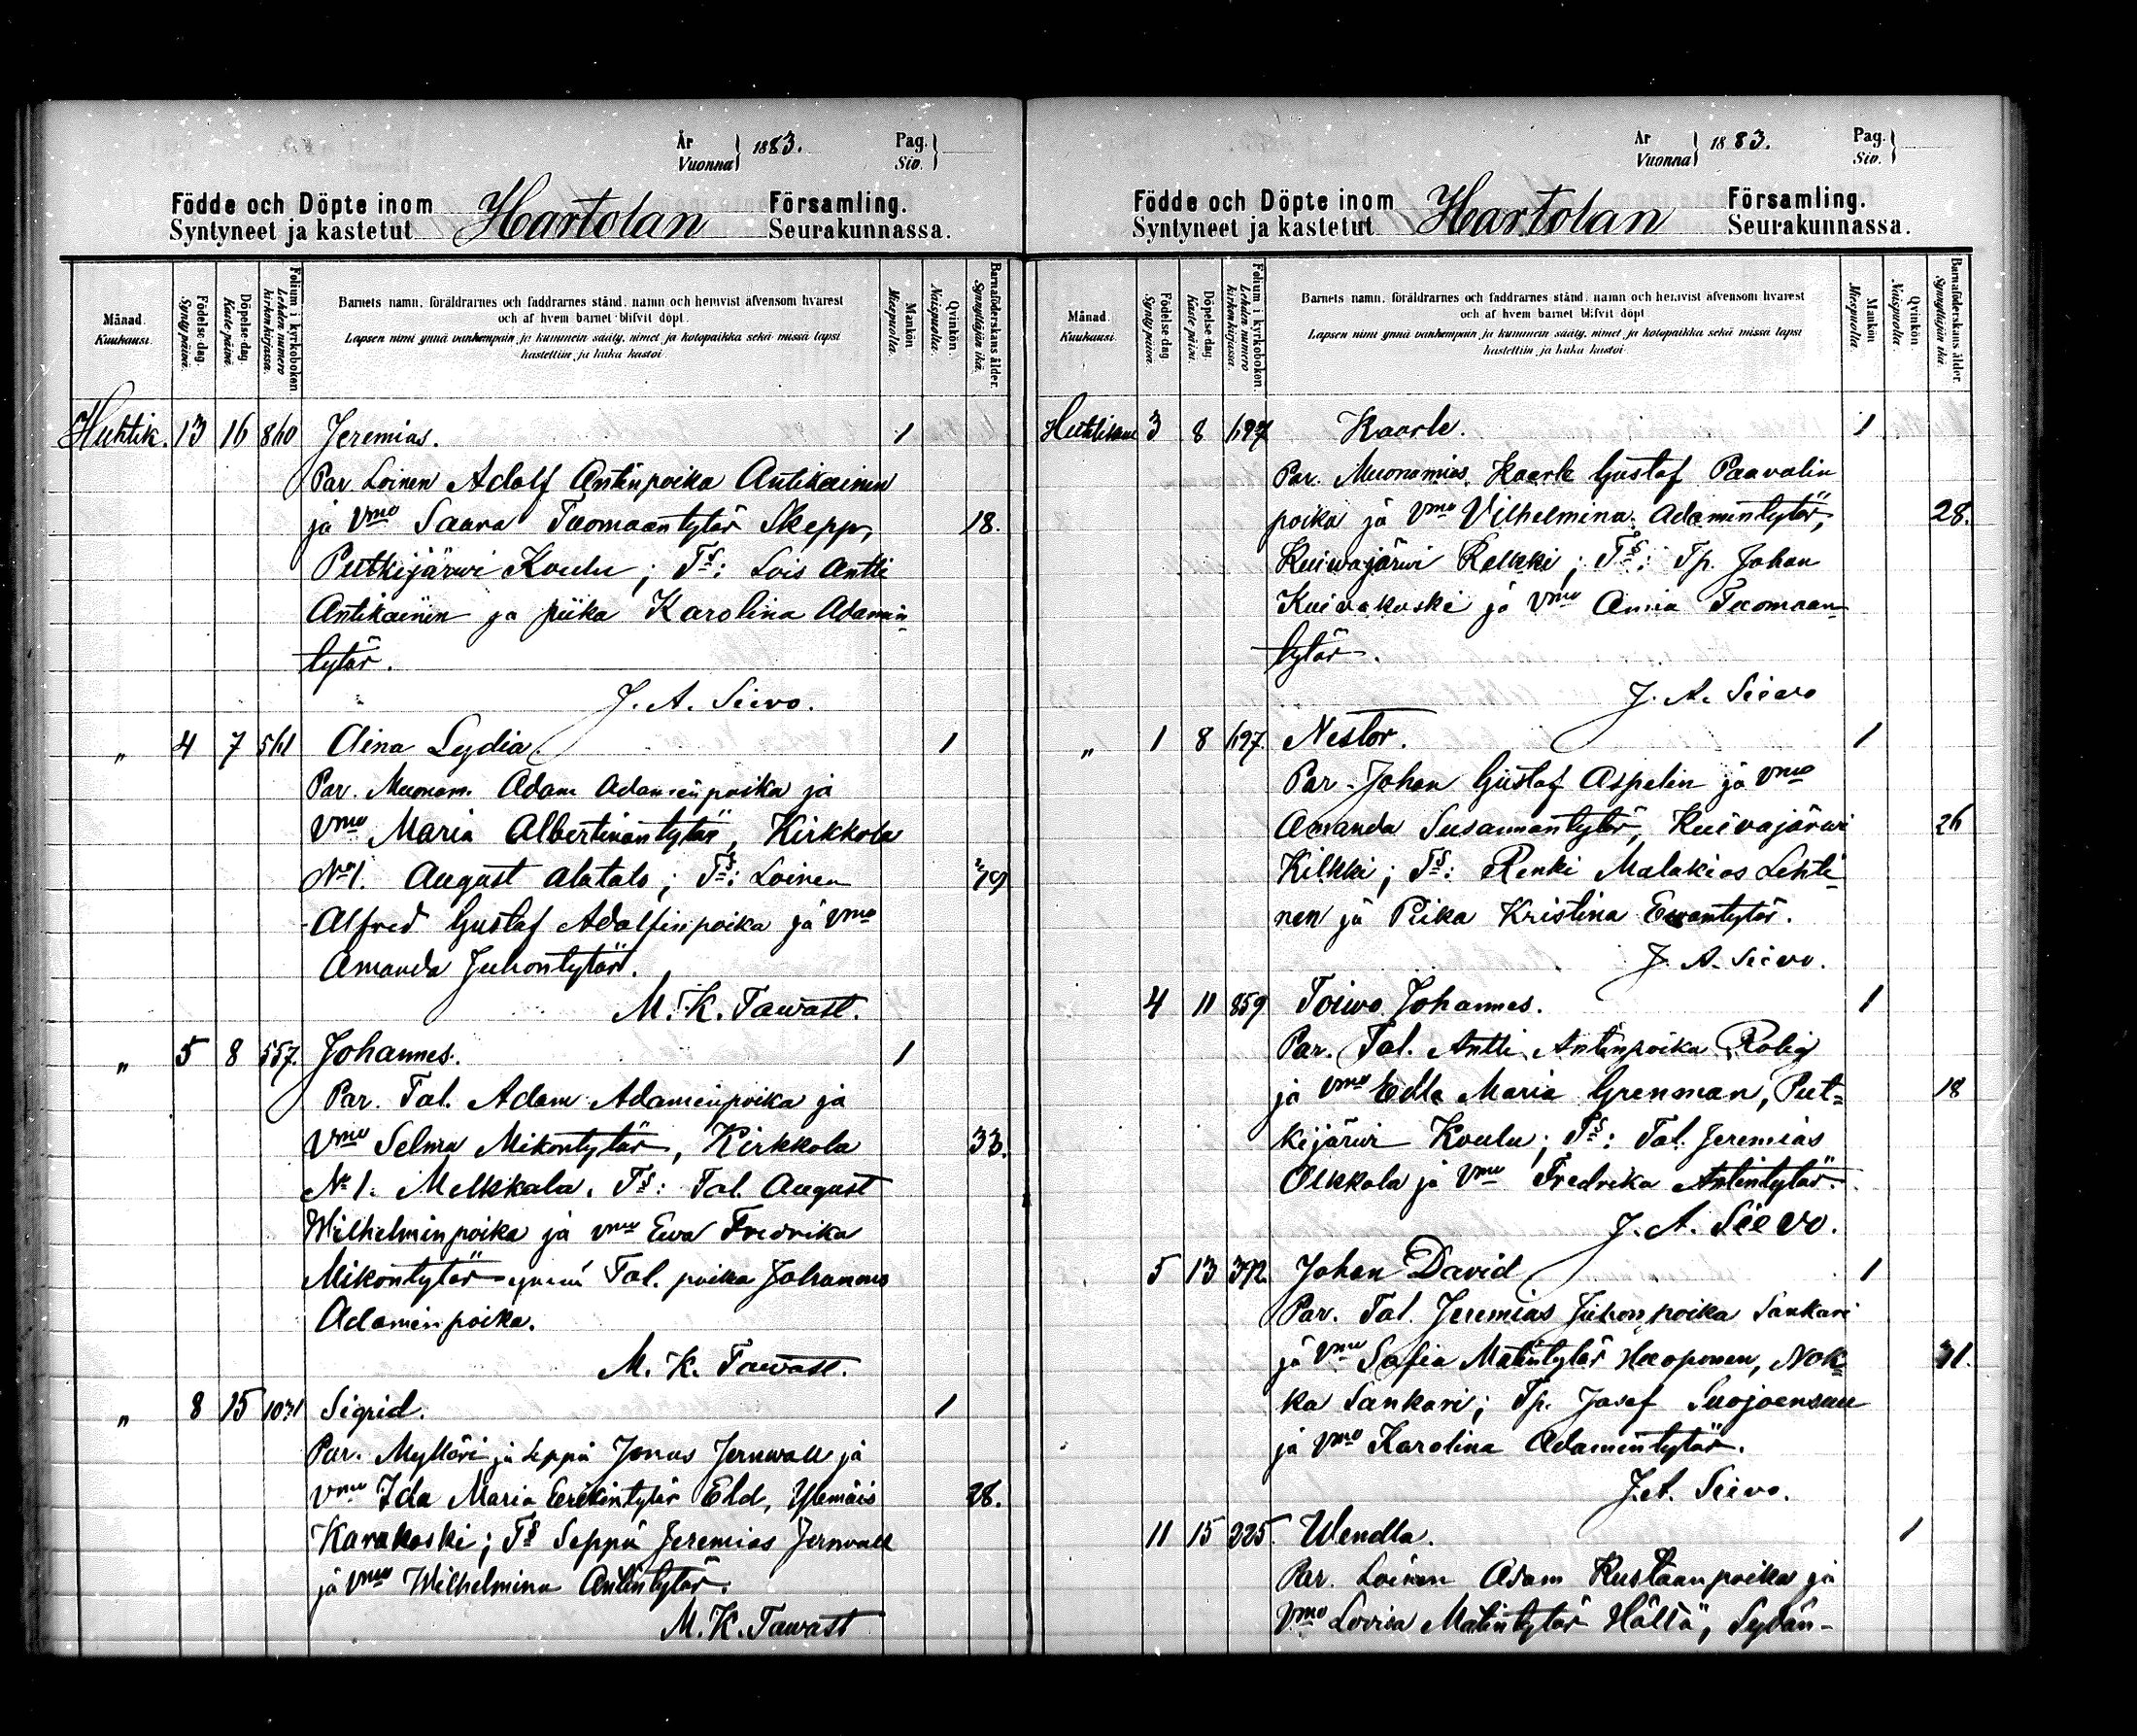 År 1883. Pag.
Vuonna Siv.
Födde och Döpte inom Hartolan Församling.
Syntyneet ja kastetut Seurakunnassa.
Månad. Kuukausi.
Födelse-dag. Syntypäivä.
Döpelse-dag. Kaste-päivä.
Folium i kyrkoboken. Lehden numero kirkonkirjassa.
Barnets namn, föräldrarnes och faddrarnes stånd, namn och hemvist äfvensom hvarest
och af hvem barnet blifvit döpt.
Lapsen nimi ynnä vanhempain ja kummein sääty, nimet ja kotopaikka sekä missä lapsi
kastettiin ja kuka kastoi.
Mankön. Miespuolia.
Qvinkön. Naispuolia.
Barnaföderskans ålder. Synnyttäjän ikä.
Huhtik. 13 16 860 Jeremias. 1
Par. Loinen Adolf Antinpoika Antikainen
ja Vmo Saara Tuomaantytär Skepp, 18.
Putkijärwi Koulu; Ts: Lois Antti
Antikainen ja piika Karolina Adamin
tytär.
J. A. Siivo.
" 4 7 561 Aina Lydia. 1
Par. Muonam. Adam Adaminpoika ja
Vmo Maria Albertinantytär, Kirkkola
No 1. August Alatalo; Ts: Loinen
Alfred Gustaf Adolfinpoika ja Vmo
Amanda Juhontytär.
M. K. Tawast.
" 5 8 557. Johannes. 1
Par. Tal. Adam Adaminpoika ja
Vmo Selma Mikontytär, Kirkkola 33.
No 1. Melkkala. Ts: Tal. August
Wilhelminpoika ja vmo Ewa Fredrika
Mikontytär ynnä Tal. poika Johannes
Adaminpoika.
M. K. Tawast.
" 8 15 1031 Sigrid. 1
Par. Mylläri ja seppä Jonas Jernwall ja
vmo Ida Maria Erikintytär Ehd, Ylemäis 28.
Karakoski; Ts Seppä Jeremias Jernvall
ja vmo Wilhelmina Antintytär.
M. K. Tawast
År 1883. Pag.
Vuonna Siv.
Födde och Döpte inom Hartolan Församling.
Syntyneet ja kastetut Seurakunnassa.
Månad. Kuukausi.
Födelse-dag. Syntypäivä.
Döpelse-dag. Kaste-päivä.
Folium i kyrkoboken. Lehden numero kirkonkirjassa.
Barnets namn, föräldrarnes och faddrarnes stånd, namn och hemvist äfvensom hvarest
och af hvem barnet blifvit döpt.
Lapsen nimi ynnä vanhempain ja kummein sääty, nimet ja kotopaikka sekä missä lapsi
kastettiin ja kuka kastoi.
Mankön. Miespuolia.
Qvinkön. Naispuolia.
Barnaföderskans ålder. Synnyttäjän ikä.
Huhtikuu 3 8 697 Kaarle. 1
Par. Muonamies. Kaarle Gustaf Paavalin
poika ja Vmo Vilhelmina Adamintytär, 28.
Kuivajärwi Kelkki; Ts: Tp. Johan
Kuivakoski ja Vmo Anna Tuomaan
tytär.
J. A. Siivo
" 1 8 697. Nestor. 1
Par. Johan Gustaf Aspelin ja Vmo
Amanda Susannantytär, Kuivajärwi 26
Kilkki; Ts: Renki Malakias Lehti
nen ja Piika Kristina Ewantytär.
J. A. Siivo.
4 11 859 Toiwo Johannes. 1
Par. Tal. Antti Antinpoika Rolig
ja Vmo Edla Maria Grenman, Put= 18
kijärwi Koulu; Ts: Tal. Jeremias
Olkkola ja Vmo Fredrika Antintytär.
J. A. Siivo.
5 13 372 Johan David 1
Par. Tal. Jeremias Juhonpoika Sankari
ja Vmo Sofia Matintytär Haoponen, Nok 31.
ka Sankari; Tp. Josef Suojoensuu
ja Vmo Karolina Adamintytär.
J. A. Siivo.
11 15 225. Wendla. 1
Par. Loinen Adam Kustaanpoika ja
Vmo Lovisa Matintytär Hältä, Sydän-